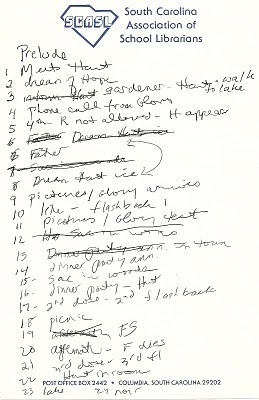 SCASL
South Carolina
Association of
School Librarians
Prelude
1 Meets Hart
2 dream of Hope
3 gardener - Hart - walk
to lake
4 phone call from Glory
5 4th R not allowed - H appears
6
6 Father
7
8 Dream Hart ice
9 pictures/Glory arrives
10 lake - flashback 1
11 pictures/Glory Hart
12
13 in town
14 dinner party ann.
15 - Sac in woods
16 - dinner party - Hart
17 - 2nd dose - 2nd flashback
18 picnic
19 FS
20 aftermath - F dies
21 3rd dose 3rd fl
22 Hart in room
POST OFFICE BOX 2442 • COLUMBIA, SOUTH CAROLINA 29202
23 lake